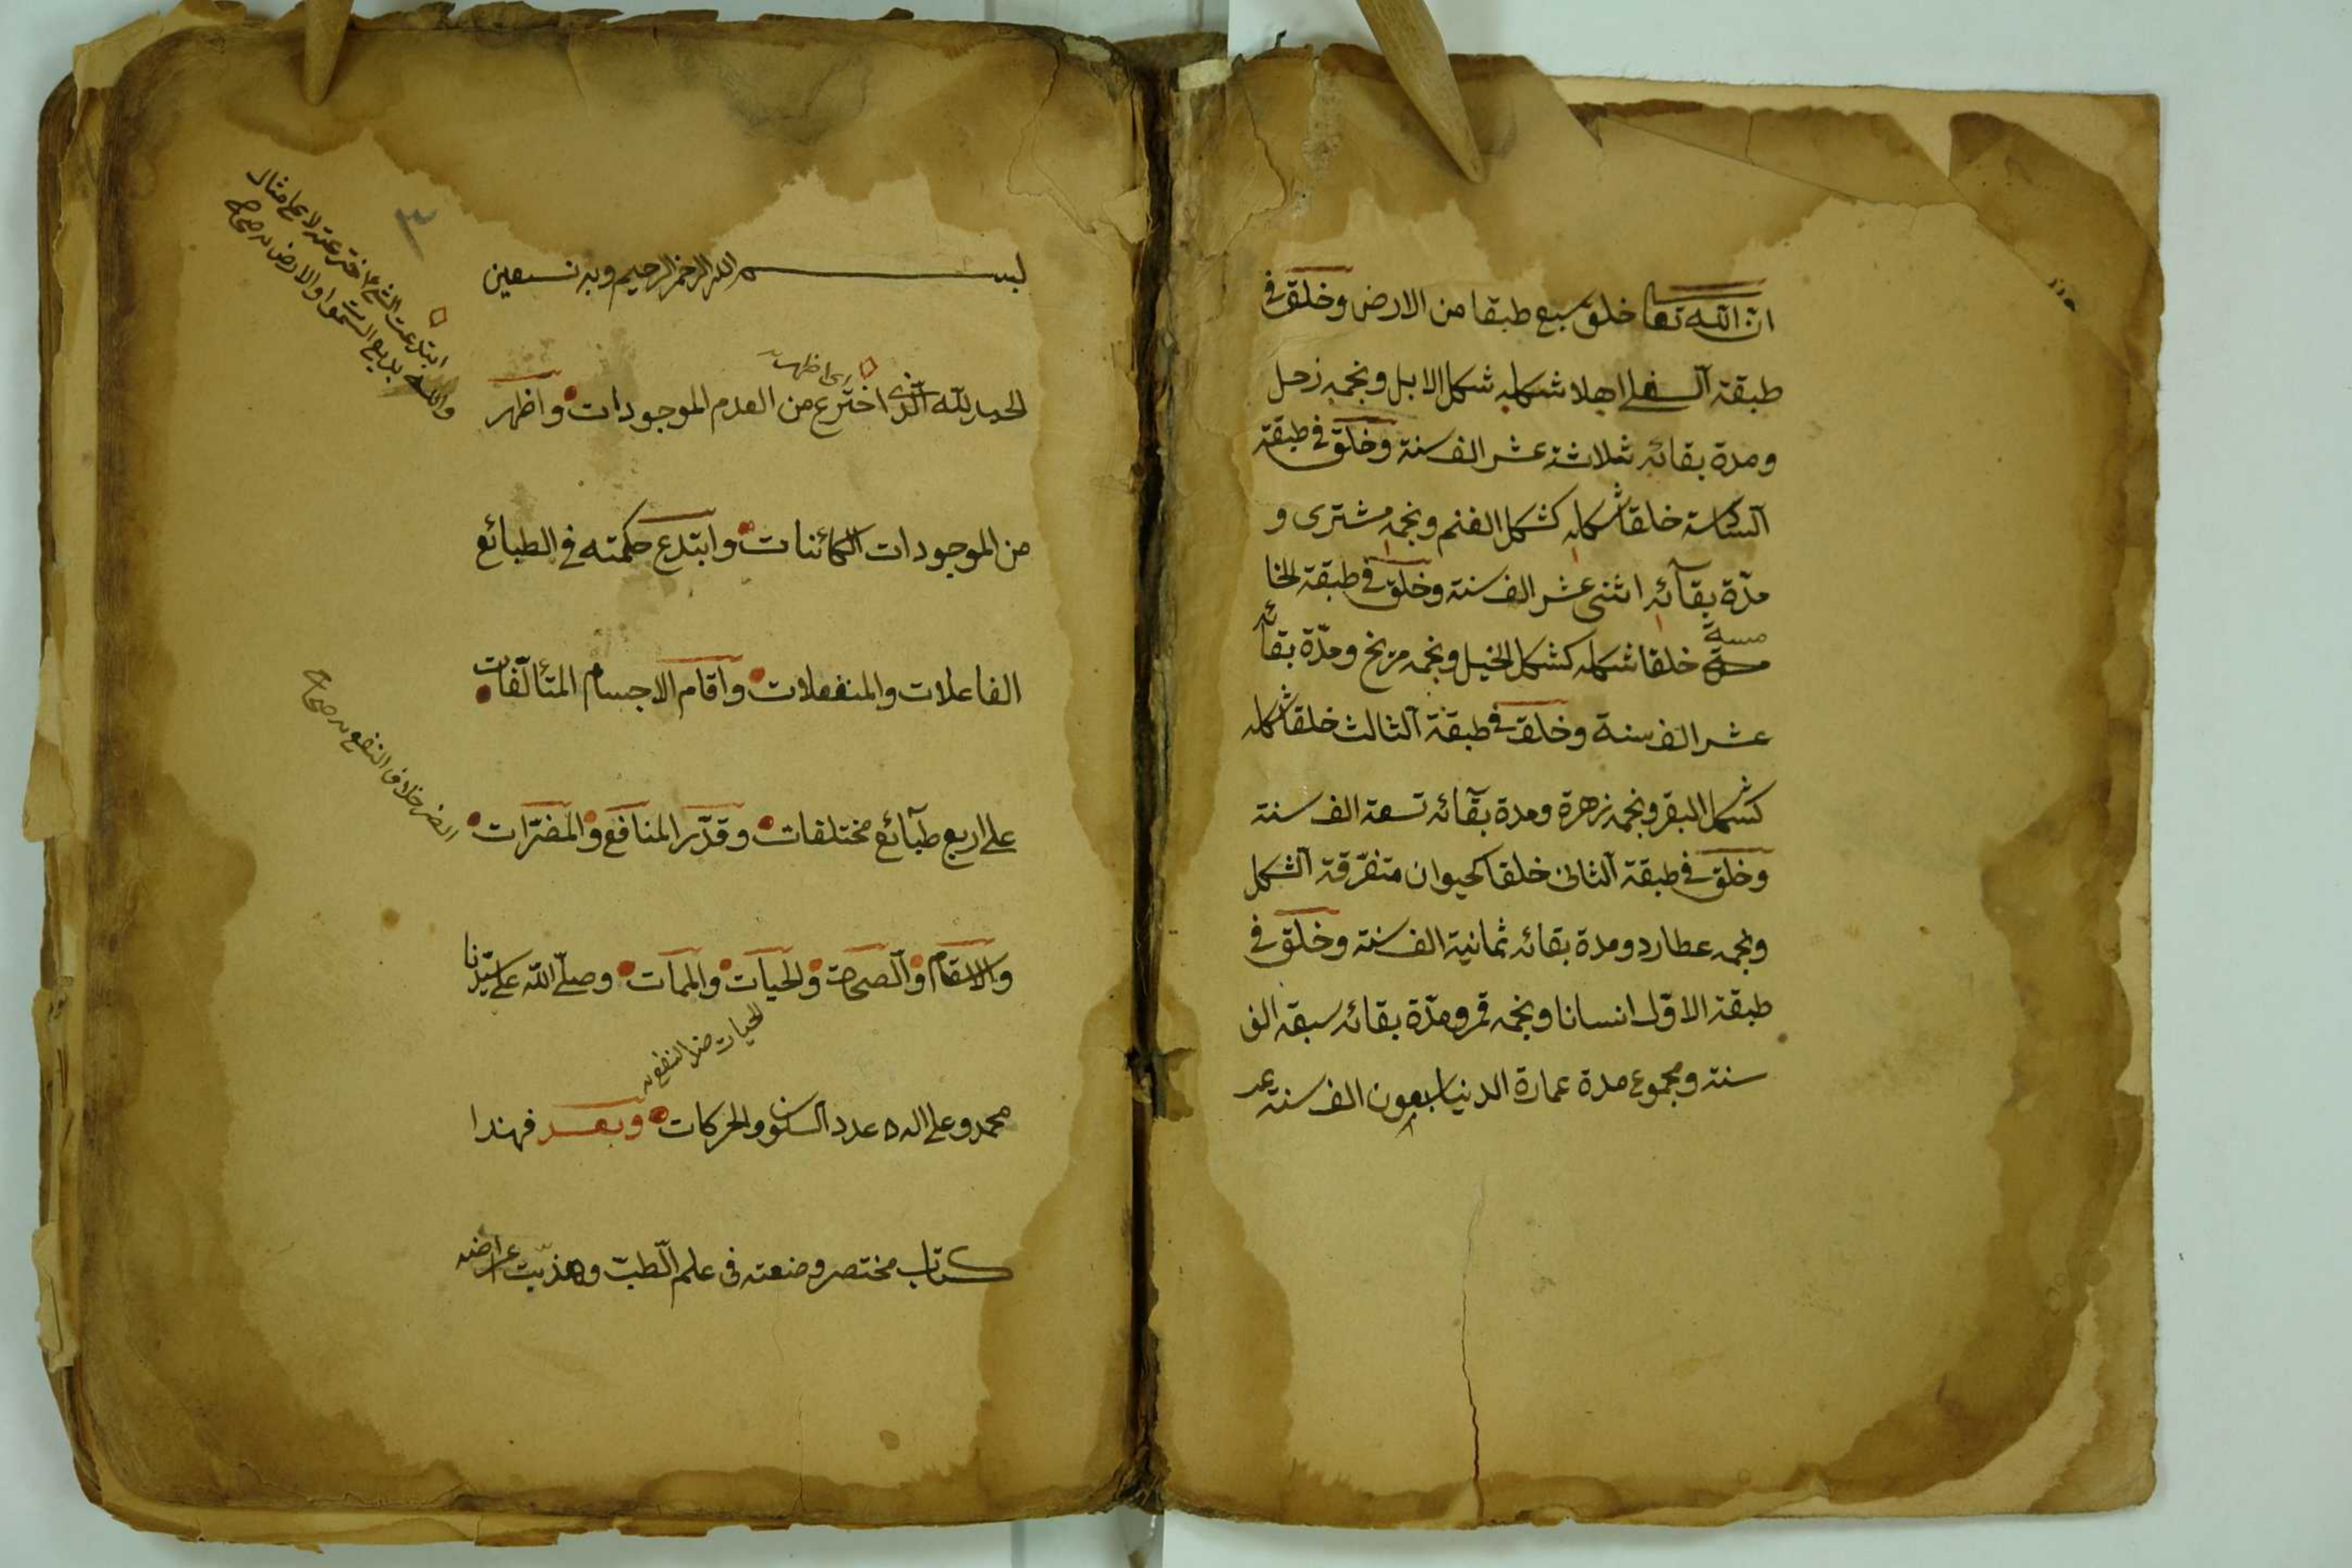 ان الله تعا خلق سبع طبقا من الارض وخلق فى
طبقة السفلى اهلا شكله شكل الابل ونجمه زحل
ومدة بقائه ثلاثة عشر الف سنة وخلق فى طبقة
السادسة خلقا شكله كشكل الغنم ونجمه مشترى و
مدّة بقآئه اثنى عشر الف سنة وخلق فى طبقة الخا
مسة خلقا شكله كشكل الخيل ونجمه مريخ ومدّة بقائه
عشر الف سنة وخلق فى طبقة الثالث خلقا شكله
كشكل البقر ونجمه زهرة ومدة بقآئه تسعة الف سنة
وخلق فى طبقة الثانى خلقا كحيوان متفرّقة الشكل
ونجمه عطارد ومدة بقائه ثمانية الف سنة وخلق فى
طبقة الاوّل انسانا ونجمه قمر ومدّة بقائه سبعة الف
سنة ومجموع مدة عمارة الدنيا سبعون الف سنة
٣
بســـم الله الرحمن الرحيم وبه نستعين
الحمد لله الّذى اخترع من العدم الموجودات واظهر
اى اظهر
من الموجودات الكائنات وابتدع حكمته فى الطبائع
الفاعلات والمنفعلات واقام الاجسام المتألّفات
على اربع طبآئع مختلفات وقدّر المنافع والمضرّات
والاسقام والصحات والحيات والممات وصلّى الله على سيّدنا
محمد وعلى اله عدد السكون والحركات وبعد فهذا
كتاب مختصر وضعته فى علم الطبّ وهذبت
ابتدعت الشئ اخترعته لا على مثال
والله بديع السموات والارض صحاح
الضر خلاف النفع صحاح